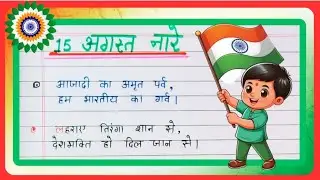 15 अगस्त नारे
① आज़ादी का अमृत पर्व,
हम भारतीय का गर्व।
② लहराए तिरंगा शान से,
देशभक्ति हो दिल जान से।